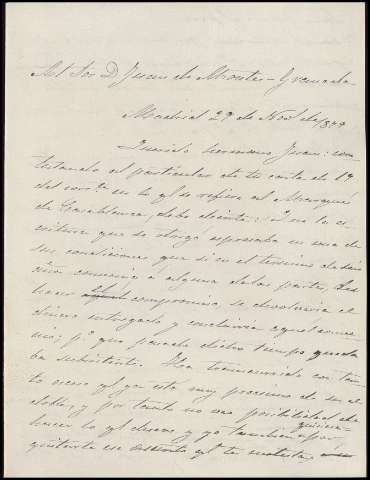 Al Sor D Juan de Montes - Granada
Madrid 29 de Nov. de 1877
Querido hermano Juan: con-
testando al particular de tu carta de 19
del corrte en lo ql se refiere al Marqués
de Casablanca, debo decirte: Que la es-
critura que se otorgó expresaba en una de
sus condiciones que si en el termino de
año convenia a alguna de las partes, des-
hacer el compromiso, se devolveria el
dinero entregado y concluiria aquel conve-
nio; pº que pasado dicho tiempo queda-
ba subsistente. Ha transcurrido con tan-
to esceso ql ya está muy proximo de ser el
doble, y por tanto no veo posibilidad de
hacer lo ql desea y yo tambien quisiera por
quitarte